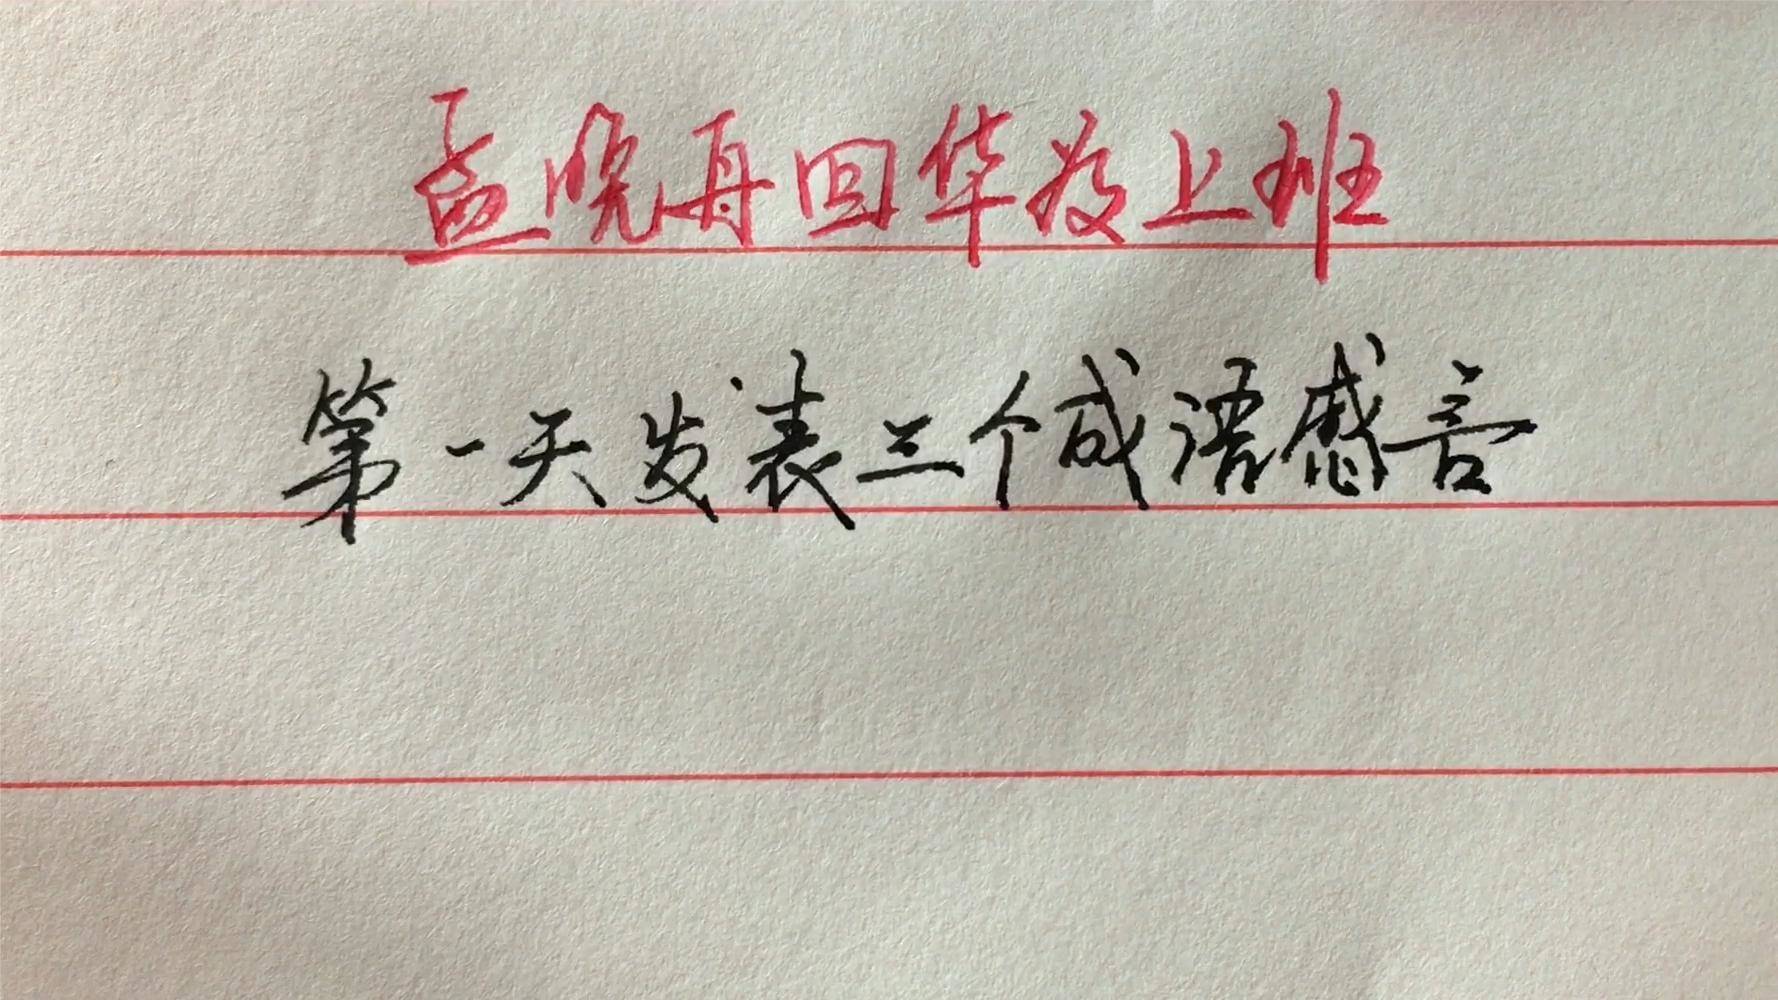 孟晚舟回华为上班
第一天发表三个成语感言